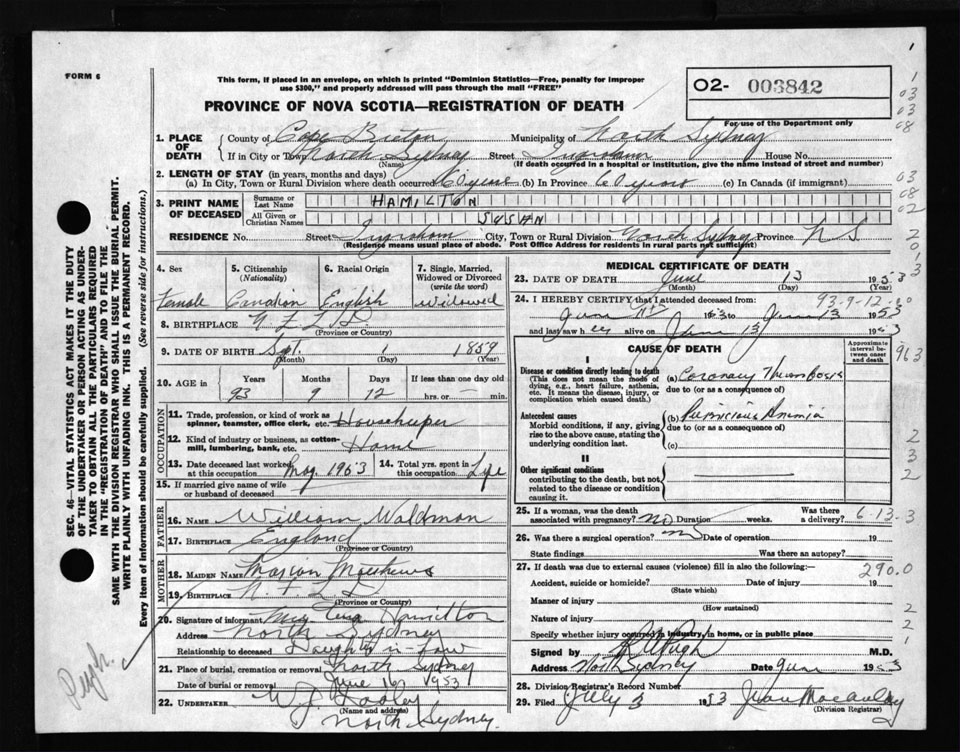 FORM 6
This form, if placed in an envelope, on which is printed "Dominion Statistics—Free, penalty for improper
use $300," and properly addressed will pass through the mail "FREE"
O2- 003842
For use of the Department only
PROVINCE OF NOVA SCOTIA—REGISTRATION OF DEATH
1. PLACE OF DEATH
County of Cape Breton Municipality of North Sydney
If in City or Town North Sydney Street Ingraham House No.
(Name) (If death occurred in a hospital or institution, give the name instead of street and number)
2. LENGTH OF STAY (in years, months and days)
(a) In City, Town or Rural Division where death occurred 60 years (b) In Province 60 years (c) In Canada (if immigrant)
3. PRINT NAME OF DECEASED
Surname or Last Name HAMILTON
All Given or Christian Names SUSAN
RESIDENCE No. Street Ingraham City, Town or Rural Division North Sydney Province N S
(Residence means usual place of abode. Post Office Address for residents in rural parts not sufficient)
4. Sex 5. Citizenship (Nationality) 6. Racial Origin 7. Single, Married, Widowed or Divorced (write the word)
Female Canadian English Widowed
8. BIRTHPLACE
(Province or Country)
9. DATE OF BIRTH Sept. 1 1859
(Month) (Day) (Year)
10. AGE in Years Months Days If less than one day old
93 9 12 hrs. or min.
OCCUPATION
11. Trade, profession, or kind of work as
spinner, teamster, office clerk, etc. Housekeeper
12. Kind of industry or business, as cotton-
mill, lumbering, bank, etc. Home
13. Date deceased last worked
at this occupation May 1953
14. Total yrs. spent in
this occupation Life
15. If married give name of wife
or husband of deceased
FATHER
16. NAME William Waldman
17. BIRTHPLACE England
(Province or Country)
MOTHER
18. MAIDEN NAME Marion Matthews
19. BIRTHPLACE N.F.L.D
(Province or Country)
20. Signature of informant Mrs Hamilton
Address North Sydney
Relationship to deceased Daughter-in-law
21. Place of burial, cremation or removal North Sydney
Date of burial or removal June 16 1953
22. UNDERTAKER W.J. Dooley
(Name and address)
North Sydney.
MEDICAL CERTIFICATE OF DEATH
23. DATE OF DEATH June 13 1953
(Month) (Day)
93-9-12
24. I HEREBY CERTIFY that I attended deceased from:
June 1953 to June 13 1953
and last saw her alive on June 13 1953
CAUSE OF DEATH
Approximate interval between onset and death
I
Disease or condition directly leading to death
(This does not mean the mode of
dying, e.g., heart failure, asthenia,
etc. It means the disease, injury, or
complication which caused death.)
(a) Coronary Thrombosis
due to (or as a consequence of)
Antecedent causes
Morbid conditions, if any, giving
rise to the above cause, stating the
underlying condition last.
(b) Pernicious Anemia
due to (or as a consequence of)
(c)
II
Other significant conditions
contributing to the death, but not
related to the disease or condition
causing it.
25. If a woman, was the death
associated with pregnancy? no Duration weeks. Was there
a delivery? 6-13-3
26. Was there a surgical operation? no Date of operation 19
State findings Was there an autopsy?
27. If death was due to external causes (violence) fill in also the following:—
290.0
Accident, suicide or homicide? Date of injury 19
(State which)
Manner of injury
(How sustained)
Nature of injury
Specify whether injury occurred in industry, in home, or in public place
Signed by Pugh M.D.
Address North Sydney Date June 1953
28. Division Registrar's Record Number
29. Filed July 3 1953 Jean Macaulay
(Division Registrar)
SEC. 46—VITAL STATISTICS ACT MAKES IT THE DUTY
OF THE UNDERTAKER OR PERSON ACTING AS UNDER-
TAKER TO OBTAIN ALL THE PARTICULARS REQUIRED
IN THE "REGISTRATION OF DEATH" AND TO FILE THE
SAME WITH THE DIVISION REGISTRAR WHO SHALL ISSUE THE BURIAL PERMIT.
WRITE PLAINLY WITH UNFADING INK. THIS IS A PERMANENT RECORD.
Every item of information should be carefully supplied. (See reverse side for instructions.)
Pugh
1
1
03
03
08
03
08
02
2
0
1
3
963
2
3
2
2
2
1